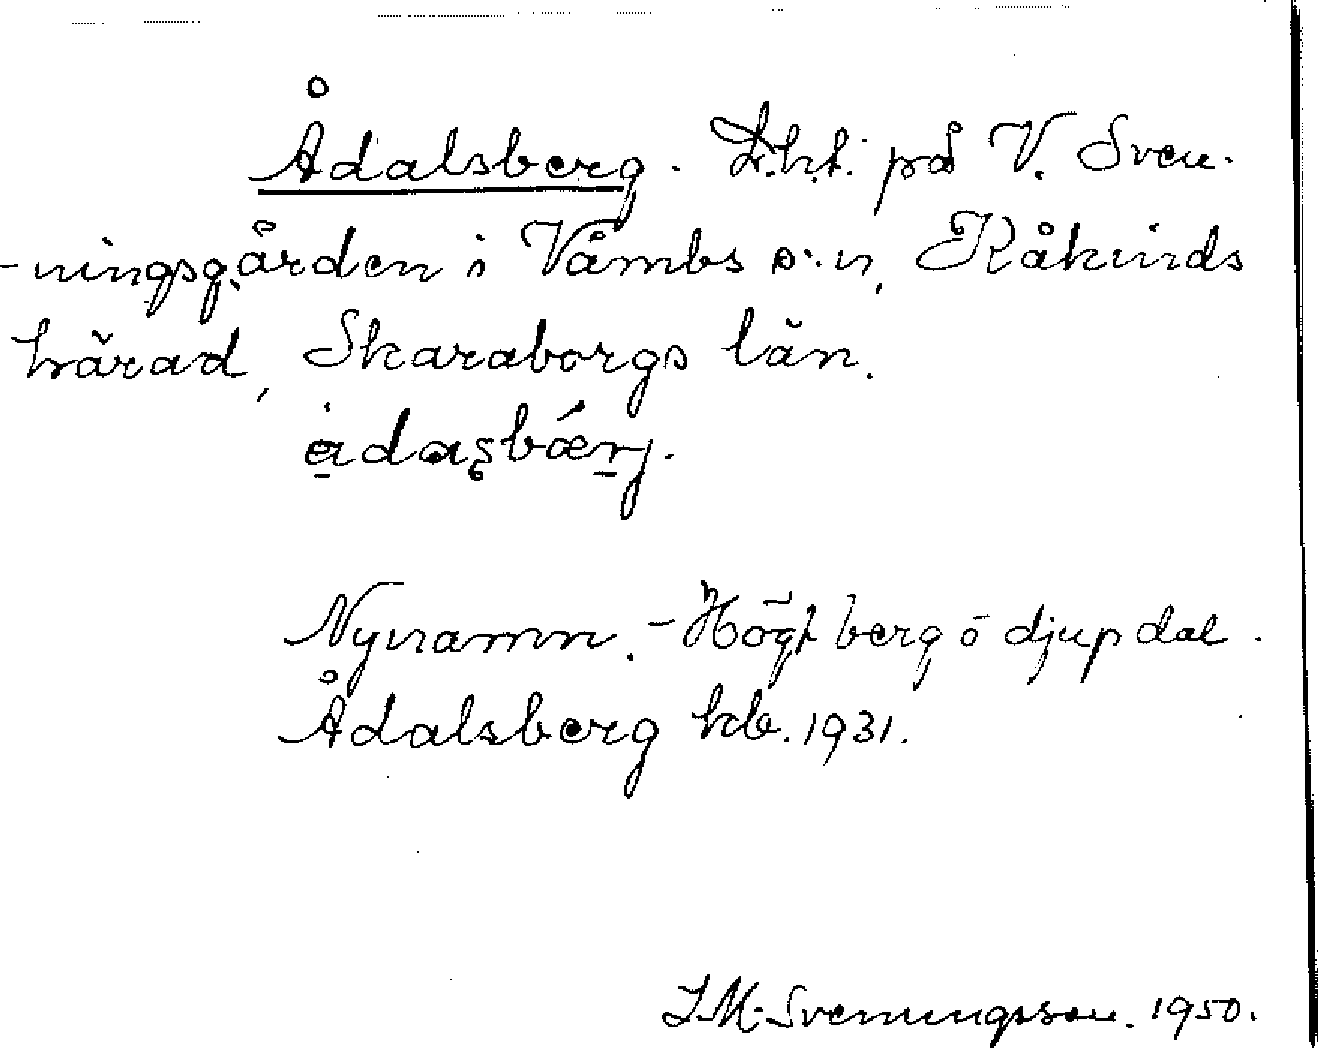 Ådalsberg. L.h.t. på V. Sven-
-ningsgården i Våmbs s:n, Kåkinds
härad, Skaraborgs län.
Nynamn. - Högt berg o djup dal.
Ådalsberg kb. 1931.
I.M. Svenningsson. 1950.